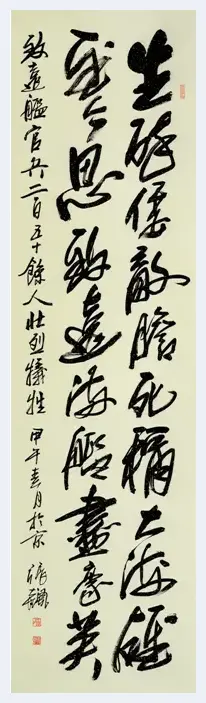 生碎倭敵膽死大海雄
至今思致遠海艦盡豪英
致遠艦官兵二百五十餘人壯烈犧牲 甲午春月於京 張飆